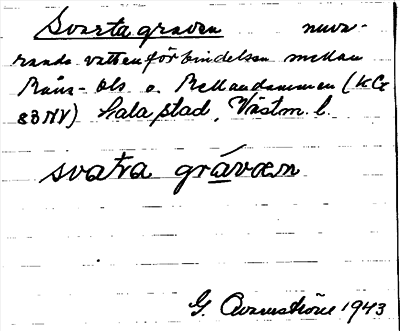 Svarta graven nuva-
rande vattenförbindelsen mellan
Råns- Ols o. Mellandammen (KG
83 NV) Sala stad, Västm. l.
svaṭa grávæn
G. 1943